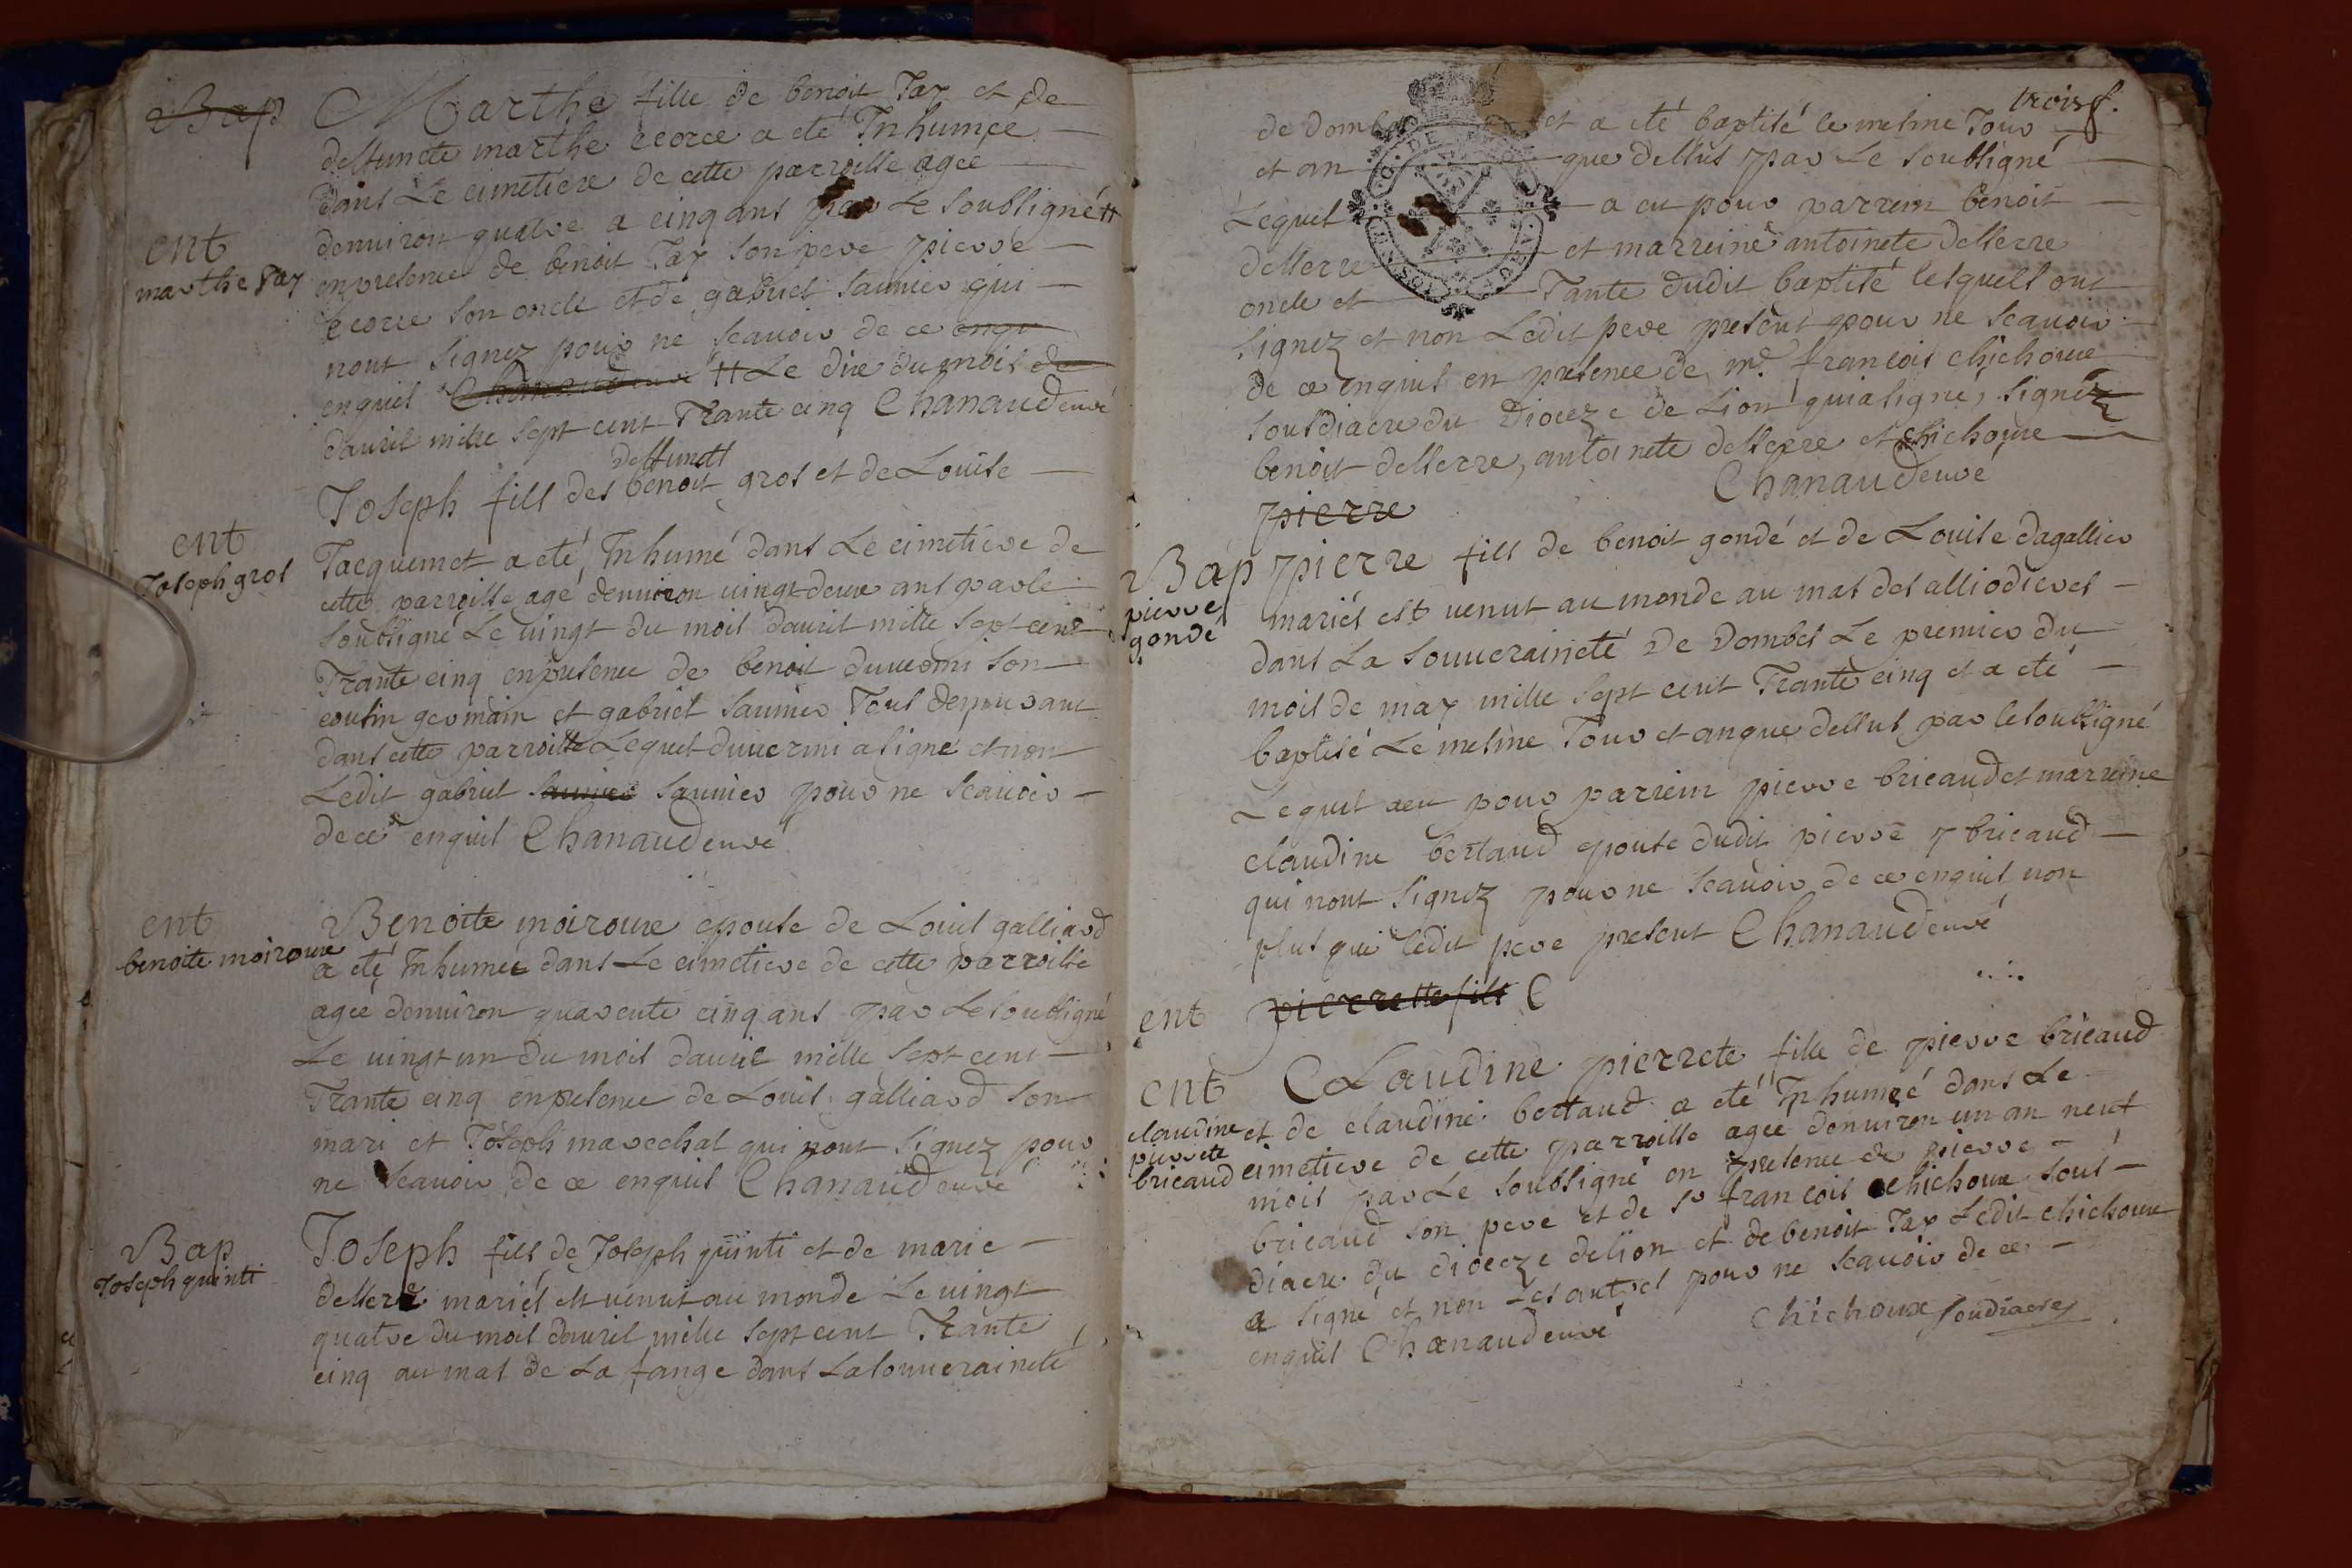 Bap
Marthe fille de benoit Jay et de
deffuncte marthe ecorce a eté Inhumée
dans Le cimetiere de cette parroisse agée
denuiron quatre a cinq ans par Le soubsigné #
ent
marthe Jay
en presence de benoit Jay son pere pierre
ecorce son oncle et de gabriel saunier qui
nont signez pour ne scauoir de ce enqu
enquis # Le dixe du mois de
dauril mille sept cent Trante cinq Chanaud curé
deffunctt
Joseph fils des benoit gros et de Louise
ent
Joseph gros
Jacquemet a eté Inhumé dans Le cimetiere de
cette parroisse agé denuiron uingt deux ans par le
soubsigné Le uingt du mois dauril mille sept cent
Trante cinq en presence de benoit duuermi son
cousin germain et gabriel saunier Tous demeurant
dans cette parroisse Lequel duuermi a signé et non
Ledit gabriel saunier saunier pour ne scauoir
de ce enquis Chanaud curé
ent
benoite moiroux
Benoite moiroux epouse de Louis galliard
a eté Inhumée dans Le cimetiere de cette parroisse
agée denuiron quarente cinq ans par Le soubsigné
Le uingt un du mois dauril mille sept cent
Trante cinq en presence de Louis galliard son
mari et Joseph marechal qui nont signez pour
ne scauoir de ce enquis Chanaud curé
Bap
Joseph quinti
Joseph fils de Joseph quinti et de marie
desserre mariés est uenut au monde Le uingt
quatre du mois dauril mille sept cent Trante
cinq au mas de La fange dans La souueraineté
trois f.
de dombes et a eté baptisé le mesme Jour
et an que dessus par Le soubsigné
Lequel a eu pour parrein benoit
desserre et marreine antoinete desserre
oncle et Tante dudit baptisé lesquels ont
signez et non Ledit pere present pour ne scauoir
de ce enquis en presence de mr. francois chichoux
sousdiacre du Dioceze de Lion qui a signé, signéz
benoit desserre, antoinete desserre et chichoux
Chanaud curé
pierre
Bap
pierre
gondé
pierre fils de benoit gondé et de Louise dagallier
mariés est uenut au monde au mas des alliodieres
dans La souueraineté De Dombes Le premier du
mois de may mille sept cent Trante cinq et a eté
baptisé Le mesme Jour et an que dessus par le soubsigné
Lequel a eu pour parrein pierre bricaud et marreine
claudine bertaud epouse dudit pierre bricaud
qui nont signez pour ne scauoir de ce enquis non
plus que ledit pere present Chanaud curé
ent
pierrette fille C
ent
claudine
pierrete
bricaud
Claudine pierrete fille de pierre bricaud
et de claudine bertaud a eté Inhumée dans Le
cimetiere de cette parroisse agée denuiron un an neuf
mois par Le soubsigné en presence de pierre
bricaud son pere et de sr francois chichoux sous
diacre du dioceze de lion et de benoit Jay Ledit chichoux
a signé et non Les autres pour ne scauoir de ce
enquis Chanaud curé
Chichoux soudiacre